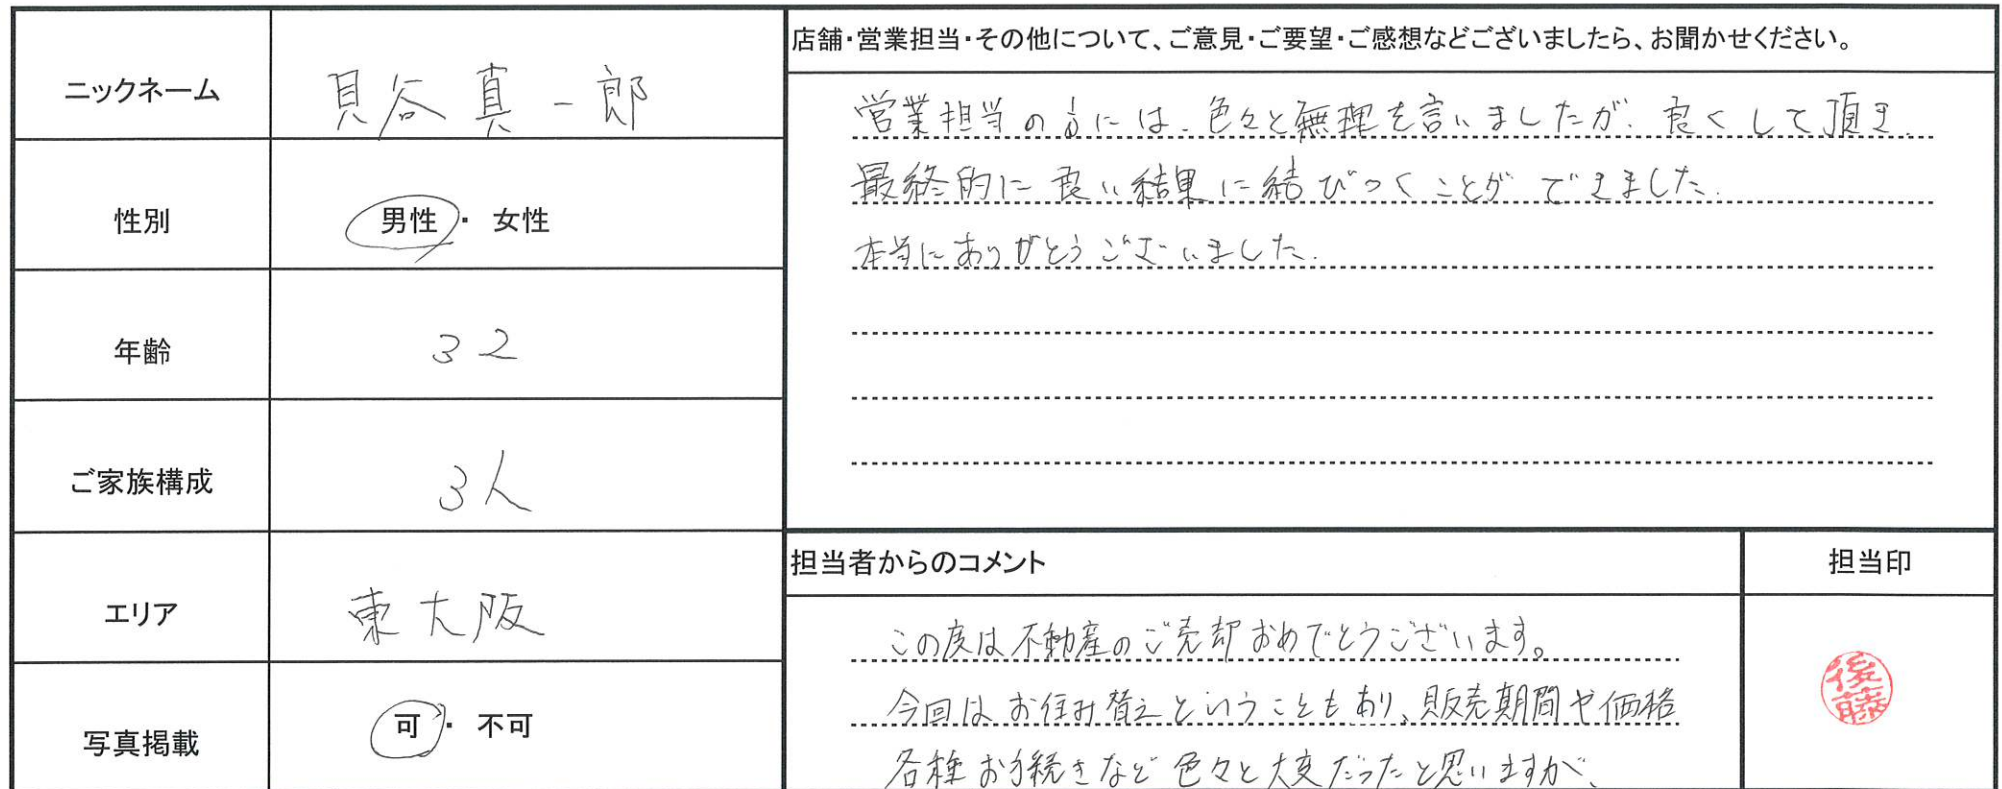 ニックネーム 貝谷真一郎
性別 男性・女性
年齢 32
ご家族構成 3人
エリア 東大阪
写真掲載 可・不可
店舗・営業担当・その他について、ご意見・ご要望・ご感想などございましたら、お聞かせください。
営業担当の方には、色々と無理を言いましたが、良くして頂き、
最終的に良い結果に結びつくことができました。
本当にありがとうございました。
担当者からのコメント
この度は不動産のご売却おめでとうございます。
今回はお住み替えということもあり、販売期間や価格
各種お手続きなど色々と大変だったと思いますが、
担当印
後藤